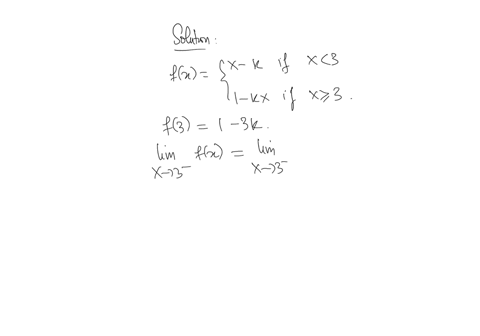 Solution:
f(x) = { x - k if x < 3
1 - kx if x ⩾ 3.
f(3) = 1 - 3k.
lim f(x) = lim
x→3⁻ x→3⁻